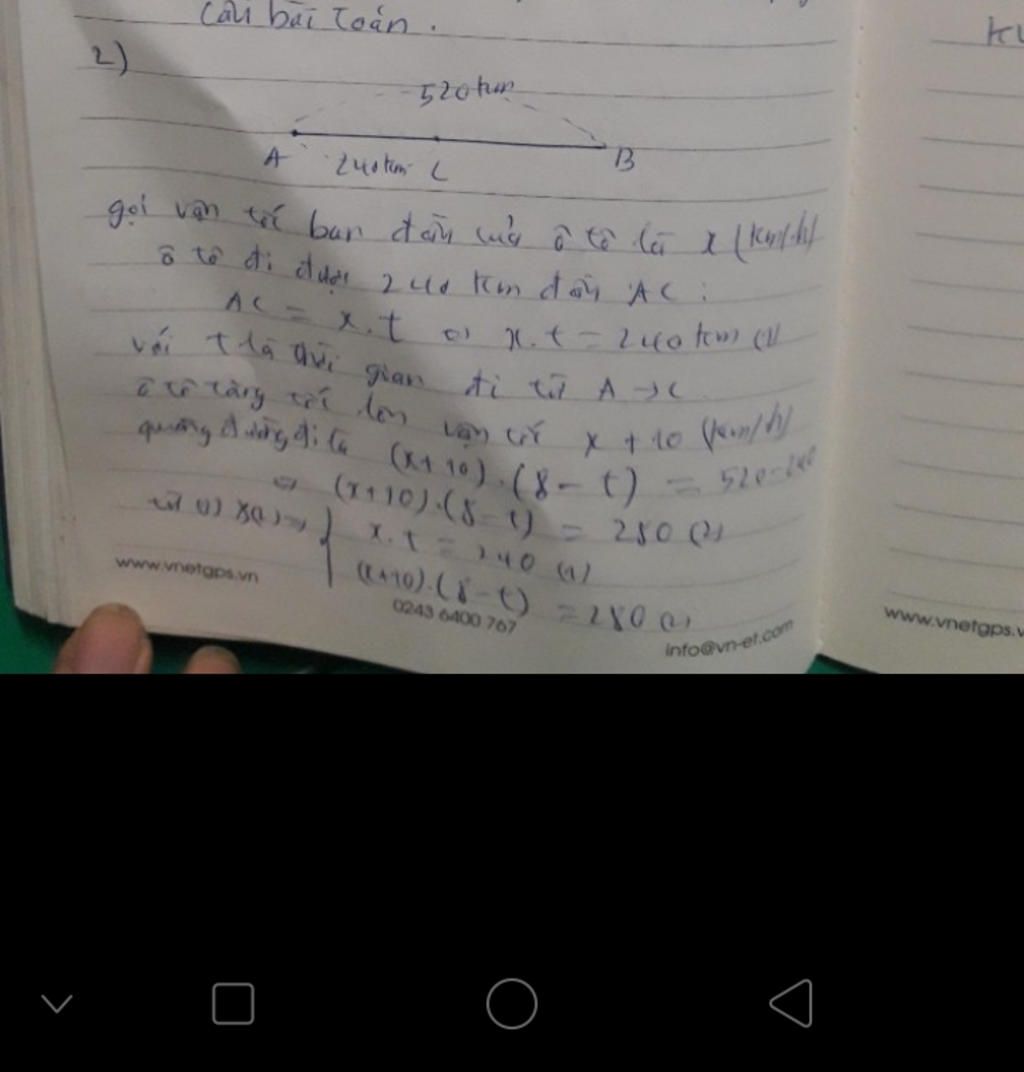 cầu bài toán.
2)
520 km
A 240 km C B
gọi vận tốc ban đầu của ô tô là x (km/h)
ô tô đi được 240 km đầu AC:
AC = x.t ⇔ x.t = 240 km (1)
với t là thời gian đi từ A → C
ô tô tăng tốc lên vận tốc x + 10 (km/h)
quãng đường đi là (x+10).(8-t) = 520-240
⇔ (x+10).(8-t) = 280 (2)
từ (1) x.t = 240 (1)
(x+10).(8-t) = 280 (2)
www.vnetgps.vn
0243 6400 767
info@vn-et.com
www.vnetgps.v